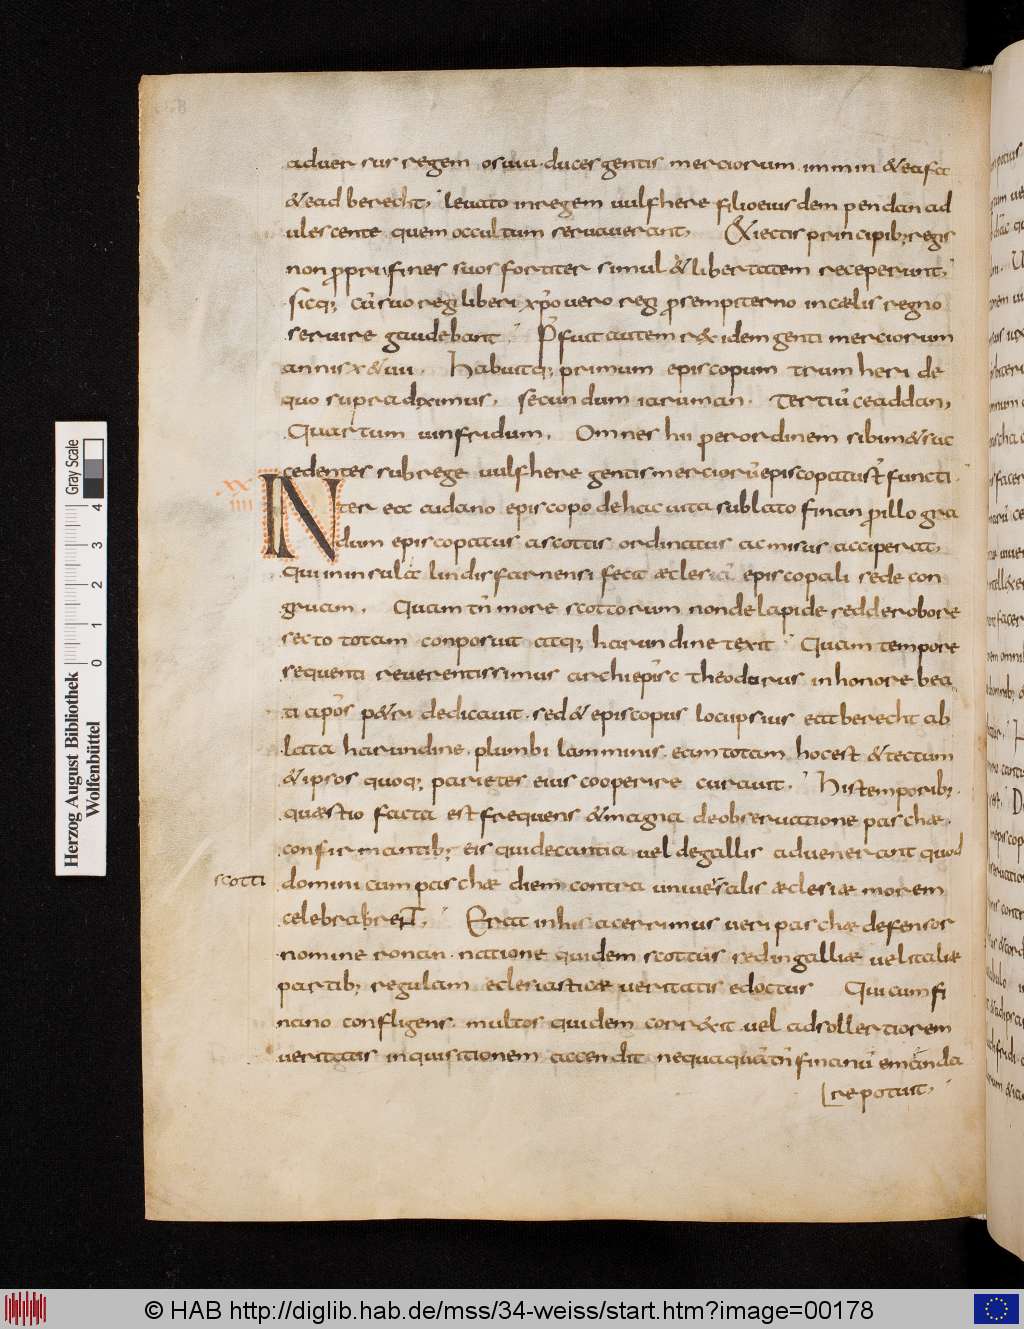 aduersus regem osuiu. duces gentis merciorum. immin & eafa
& eadberecht, leuato in regem uulfhere filio eiusdem pendan ad
ulescente quem occultum seruauerant, Eiectis principib; regis
non proprii fines suos fortiter simul & libertatem receperunt,
sicq; cū suo rege liberi. xp̄o uero regi ꝓ sempiterno in cælis regno
seruire gaudebant. Prefuit autem rex idem genti merciorum
annis x & uii. Habuitq; primum episcopum trumheri de
quo supra diximus, secundum iaruman. Tertiū ceaddan,
Quartum uinfridum, Omnes hii per ordinem sibimet suc
cedentes sub rege uulfhere gentis merciorū episcopatu s̄t functi.
xx
iiii
INter ea aidano episcopo de hac uita sublato finan pro illo gra
dum episcopatus a scottis ordinatus ac misus acciperat,
qui in insula lindisfarnensi fecit æclesiā episcopali sede con
gruam, Quam tn̄ more scottorum non de lapide sed de robore
secto totam conposuit atq; harundine texit. Quam tempore
sequenti reuerentissimus archiepis̄c theodorus in honore bea
ti apo̅s p&ri dedicauit. sed & episcopus loci ipsius eatberecht ab
lata harundine. plumbi lamminis. eam totam, hoc est & tectum
& ipsos quoq; parietes eius cooperire curauit, His temporib;
quæstio facta est frequens & magna de obseruatione paschæ.
confirmantib; eis qui de cantia uel de gallis aduenerant quod
scotti
dominicum paschæ diem contra uniuersalis æclesiæ morem
celebrarent, Erat in his acerrimus ueri paschæ defensor
nomine ronan. natione quidem scottus sed in galliæ uel italiæ
partib; regulam eclesiasticæ ueritatis edoctus Qui cum fi
nano confligens. multos quidem correxit uel ad sollertiorem
ueritatis inquisitionem accendit nequaquā tn̄ finanū emenda
re potuit,
Herzog August Bibliothek
Wolfenbüttel
0 1 2 3 4
Gray Scale
© HAB http://diglib.hab.de/mss/34-weiss/start.htm?image=00178